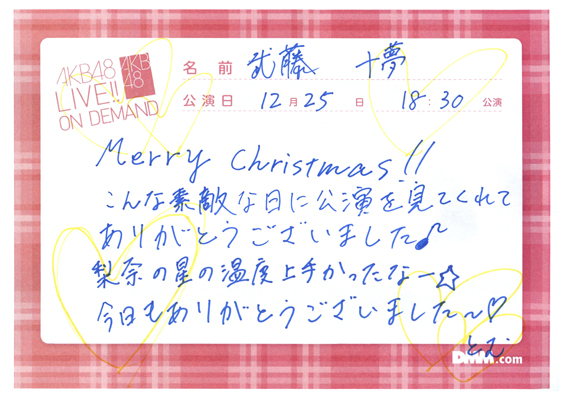 AKB48
LIVE!!
ON DEMAND
AKB
48
名前 武藤 十夢
公演日 12月25日 18:30公演
Merry Christmas!!
こんな素敵な日に公演を見てくれて
ありがとうございました♪
梨奈の星の温度上手かったなー☆
今日もありがとうございました〜♡
とむ
DMM.com